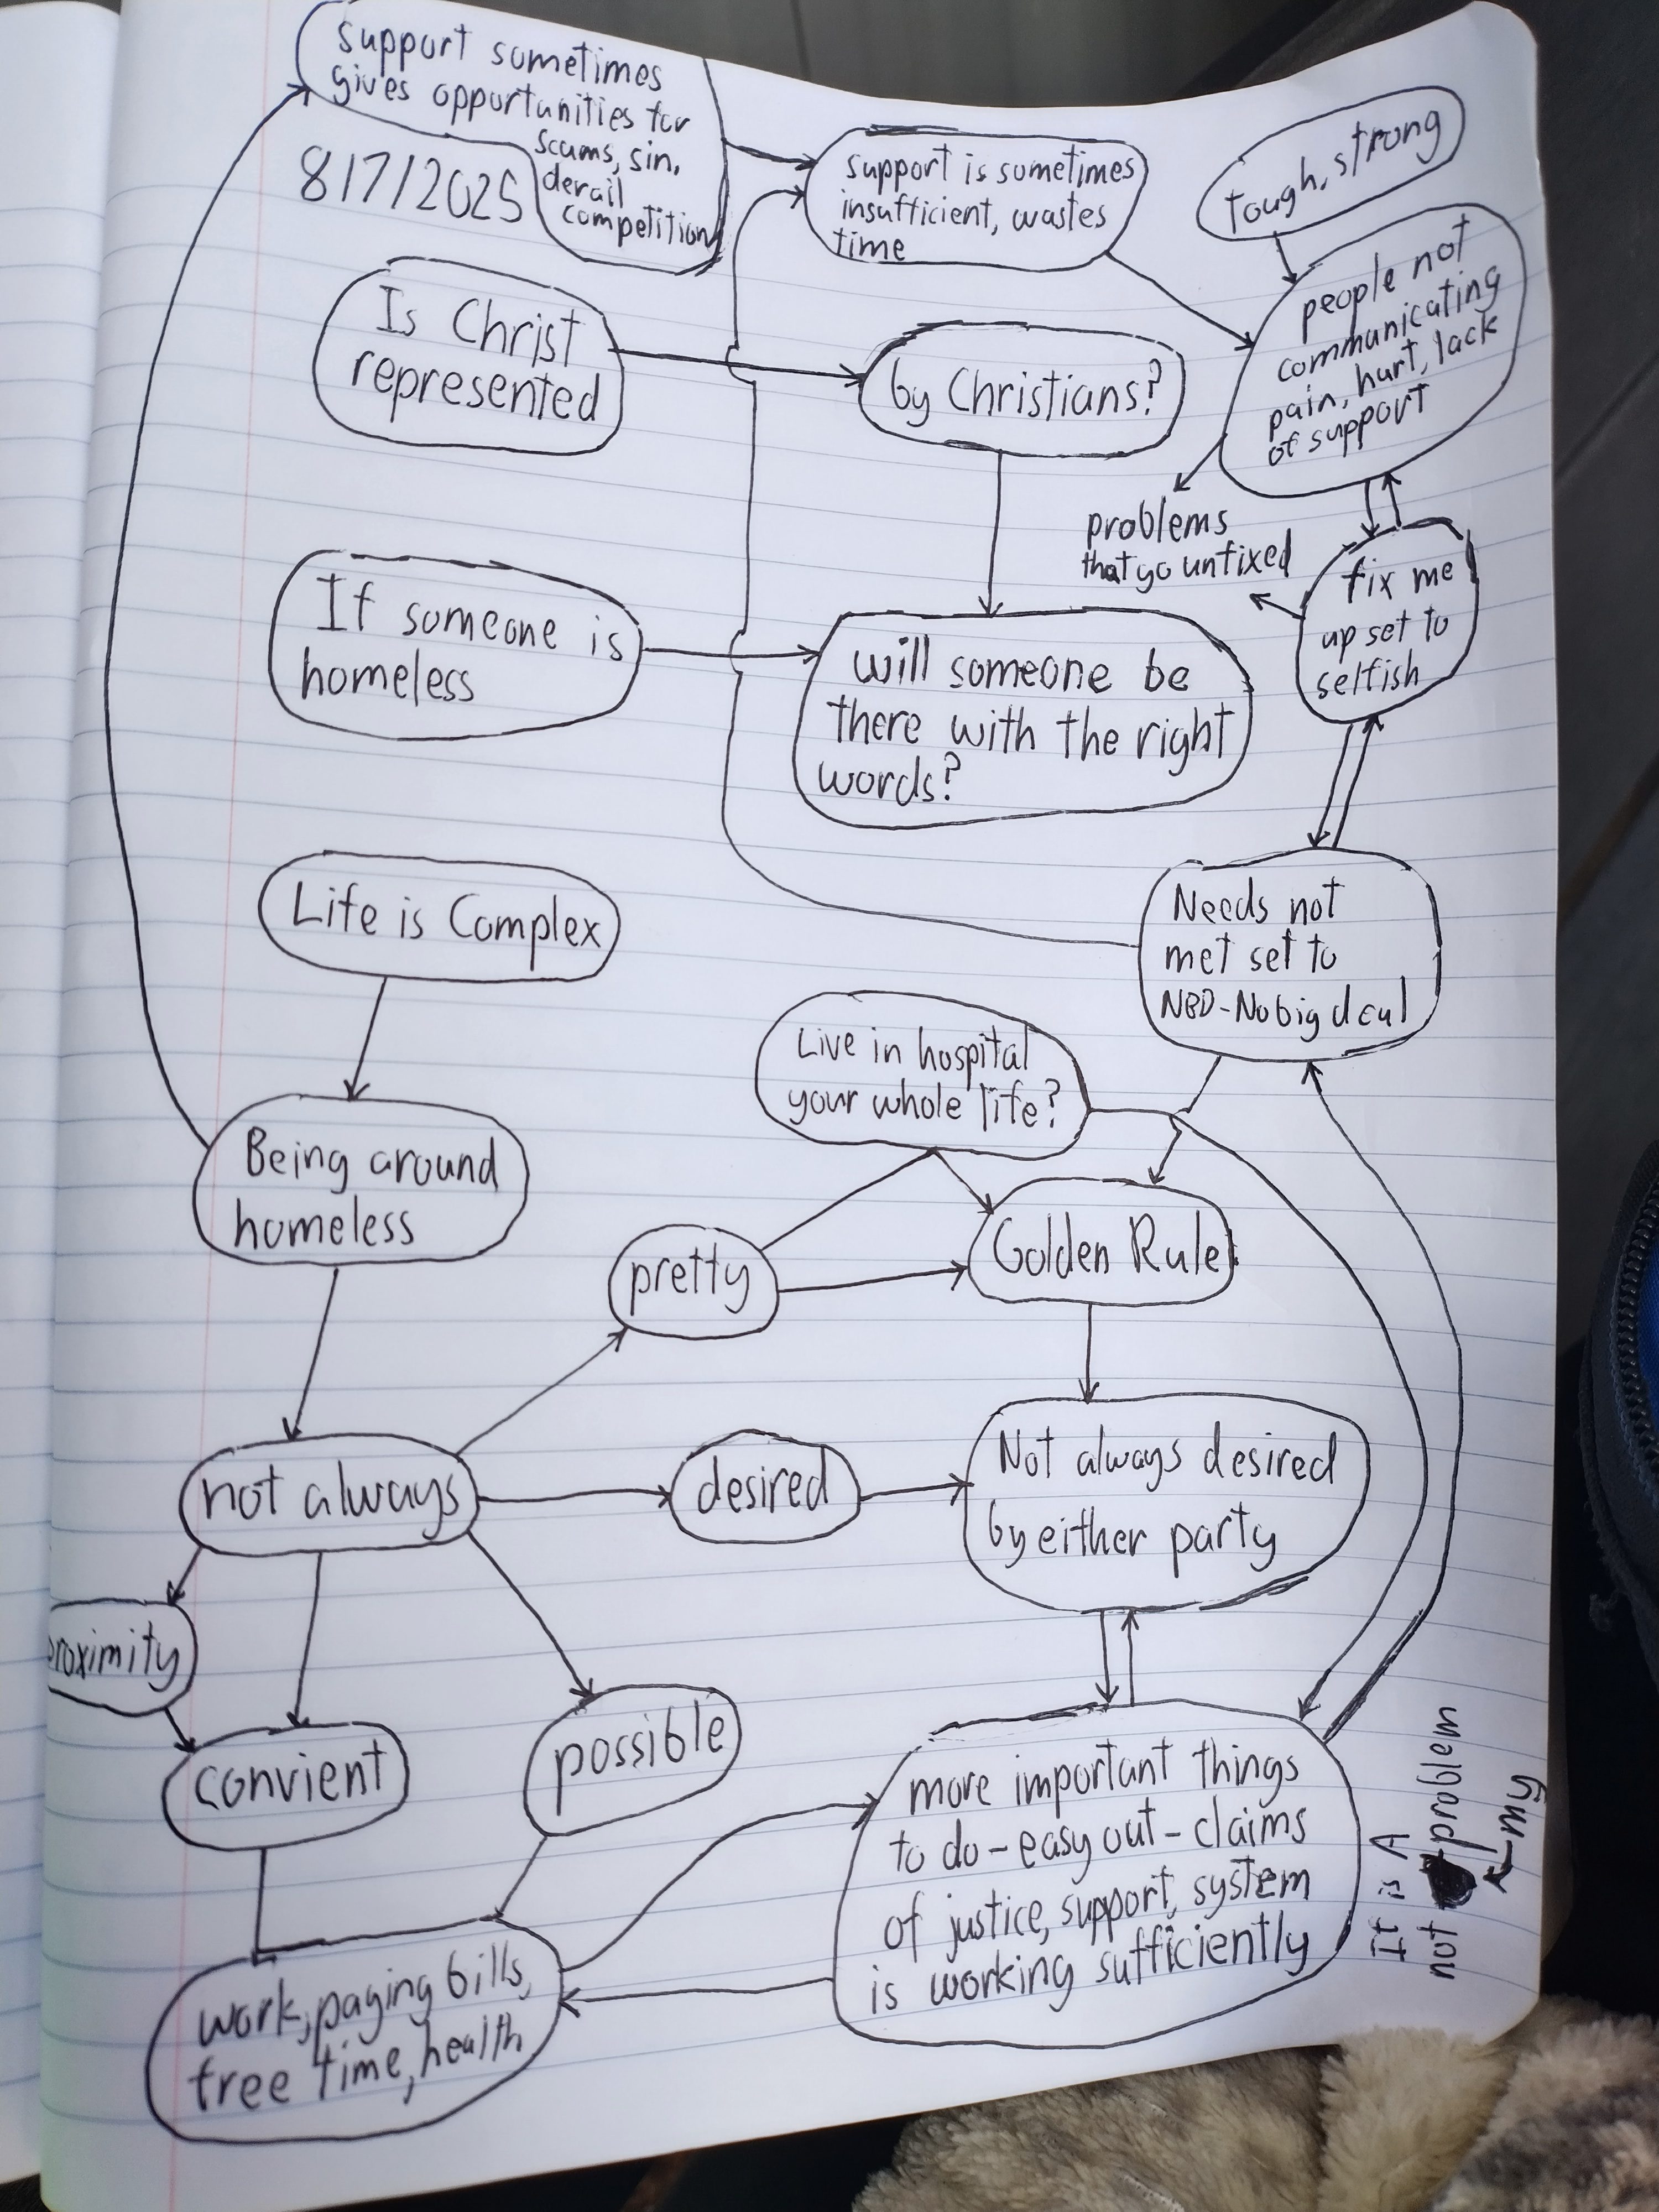 support sometimes
gives opportunities for
scams, sin,
derail
competition
8/7/2025
support is sometimes
insufficient, wastes
time
tough, strong
people not
communicating
pain, hurt, lack
of support
Is Christ
represented
by Christians?
problems
that go unfixed
fix me
up set to
selfish
If someone is
homeless
will someone be
there with the right
words?
Life is Complex
Needs not
met set to
NBD-No big deal
Live in hospital
your whole life?
Being around
homeless
pretty
Golden Rule
not always
desired
Not always desired
by either party
roximity
convient
possible
more important things
to do - easy out - claims
of justice, support, system
is working sufficiently
It is A
not problem
my
work, paying bills,
free time, health